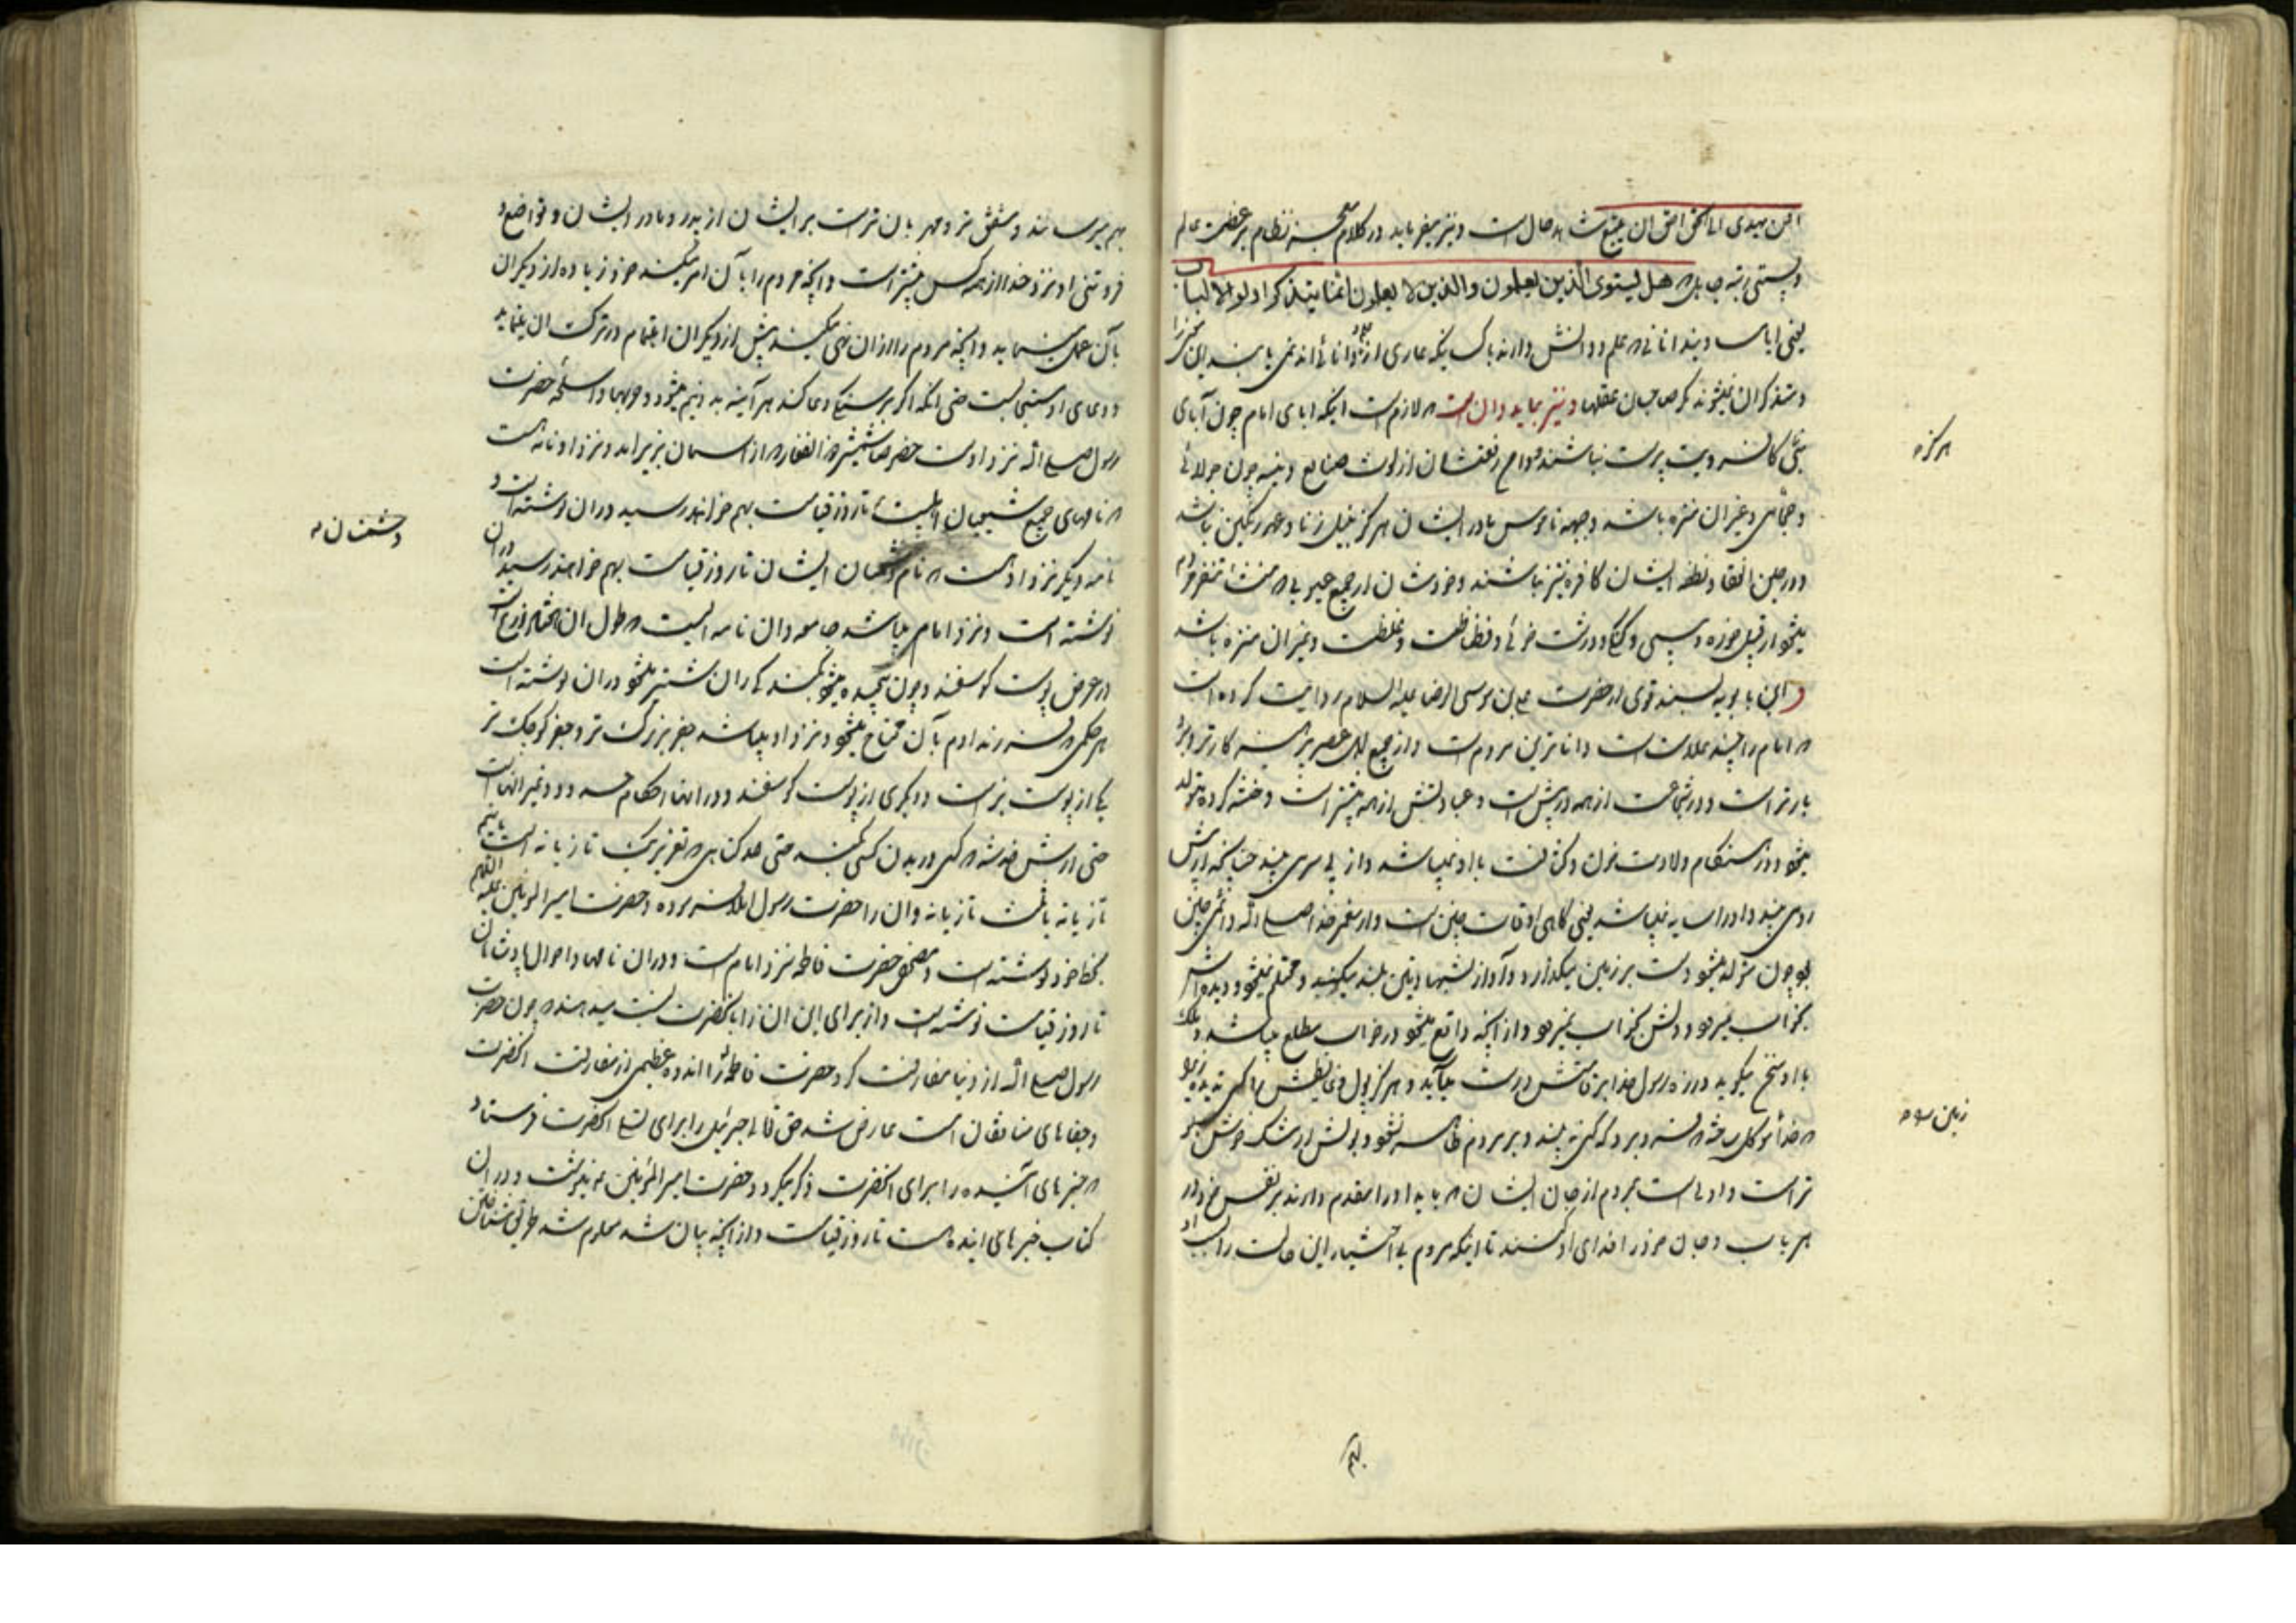 افمن یهدی الی الحق احق ان یتبع شاهد حال است و نیز میفرماید در کلام معجز نظام بر عظمت عالم
و پستی رتبه جاهل که هل یستوی الذین یعلمون والذین لا یعلمون انما یتذکر اولوا الالباب
یعنی ایا مساویند انانی که علم و دانش دارند با کسانیکه عاری از دانائی اند نمی باشند این
و متذکر ان نمیشوند مگر صاحبان عقلها و نیز بباید دانست که لازم است اینکه ابای امام چون آبای
نبی کافر و بت پرست نباشند و دامن رفعتشان از لوث صنایع دنیه چون جولائی
و حجامی و غیر ان منزه باشد و جبهه ناموس مادر ایشان هرگز بنیل زنا و عهر رنگین نباشد
و در حین انعقاد نطفه ایشان کافره نیز نباشند و خودشان از جمیع عیوبی که منشأ تنفر مردم
میشود از قبیل خوره و پیسی و کنکی و درشت خوئی و فظاظت و غلظت و غیر ان منزه باشد
و ابن بابویه بسند قوی از حضرت علی بن موسی الرضا علیه السلام روایت کرده است
که امام را چند علامت است داناترین مردم است و از جمیع اهل عصر پرهیزکارتر و بردـ
بارتر است و در شجاعت از همه در پیش است و عبادتش از همه بیشتر است و ختنه کرده متولد
میشود و در هنگام ولادت خون و کثافت با او نمیباشد و از پی سر می بیند چنانچه از پیش
روی می بیند و او را سایه نمیباشد یعنی گاهی اوقات چنین است و از پیغمبر خدا صلی الله دائمی چنین
بود چون متولد میشود دست بر زمین میگذارد و آواز بشهادتین بلند میکند و محتلم نمیشود و دیده اش
بخواب میرود و دلش بخواب نمیرود و از آنچه واقع میشود در خواب مطلع میباشد و ملک
با او سخن میگوید و زره رسول خدا بر قامتش درست میآید و هرگز بول و غایطش را کسی ندیده زیرا
که خدا موکل ساخته که فرو برد که کسی نه بیند و بر مردم ظاهر نشود و بویش از مشک خوش بو
تر است و اولی است بمردم از جان ایشان که باید او را مقدم دارند بر نفس خود در
هر باب و جان خود را فدای او کنند تا اینکه مردم بی اختیار این حالت را
هر گزه
زمین سو ه
بهم
بهم میرسانند و مشفق تر و مهربان تر است بر ایشان از پدر و مادر ایشان و تواضع و
فروتنی او نزد خدا از همه کس بیشتر است و انچه مردم را بآن امر میکند خود زیاده از دیگران
بآن عمل مینماید و انچه مردم را از ان نهی میکند پیش از دیگران اهتمام در ترک ان مینماید
و دعای او مستجاب است حتی انکه اگر بر سنگی دعا کند هر آینه بدو نیم میشود و حربها و اسلحه حضرت
رسول صلی الله نزد اوست خصوصا شمشیر ذوالفقار که از آسمان بزیر امد و نزد او نامه است
که نامهای جمیع شیعیان اهلبیت تا روز قیامت بهم خواهند رسید در ان نوشته است و
نامه دیگر نزد اوست که نام دشمنان ایشان تا روز قیامت بهم خواهند رسید در ان
نوشته است و نزد امام میباشد جامعه و ان نامه ایست که طول ان هفتاد ذرع است
در عرض پوست گوسفند و چون پیچیده میشود بکند گی ران شتر میشود در ان نوشته است
هر حکمی که فرزند ادم بآن محتاج میشود و نزد او میباشد جفر بزرگ تر و جفر کوچک تر
یکی از پوست بز است و دیگری از پوست گوسفند و در انها احکام حدود و غیر انهاست
حتی ارش خدشه که کسی در بدن کسی کند حتی حد گناهی که تعزیر یک تازیانه است یا نیم
تازیانه یا ثلث تازیانه و ان را حضرت رسول املا فرموده و حضرت امیرالمؤمنین علیه السلام
بخط خود نوشته است و مصحف حضرت فاطمه نزد امام است و در ان نامها و احوال پادشاهان
تا روز قیامت نوشته است و از برای این ان را بانحضرت نسبت میدهند که چون حضرت
رسول صلی الله از دنیا مفارقت کرد حضرت فاطمه را اندوه عظیمی از مفارقت انحضرت
و جفاهای منافقان امت عارض شد حق تعالی جبرئیل را برای تسلی انحضرت فرستاد
که خبرهای آینده را برای انحضرت ذکر میکرد و حضرت امیرالمؤمنین مینوشت و در ان
کتاب خبرهای اینده هست تا روز قیامت و از انچه بیان شد معلوم شد طریق شناختن
دشمنان م